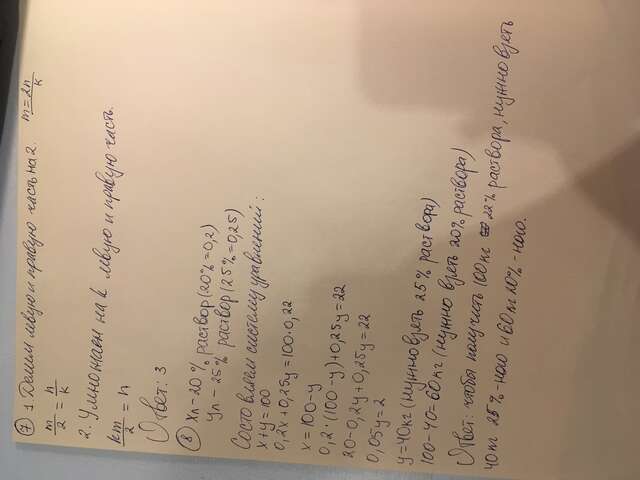 7 1 Делим левую и правую часть на 2. m = 2n/k
m/2 = n/k
2. Умножаем на k левую и правую часть.
km/2 = n
Ответ: 3
8 Xл - 20% раствор (20% = 0,2)
Yл - 25% раствор (25% = 0,25)
Составляем систему уравнений:
x+y=100
0,2x+0,25y=100·0,22
x=100-y
0,2·(100-y)+0,25y=22
20-0,2y+0,25y=22
0,05y=2
y=40кг (нужно взять 25% раствора)
100-40=60кг (нужно взять 20% раствора)
Ответ: чтобы получить 100кг 22% раствора, нужно взять
40кг 25%-ного и 60кг 20%-ного.